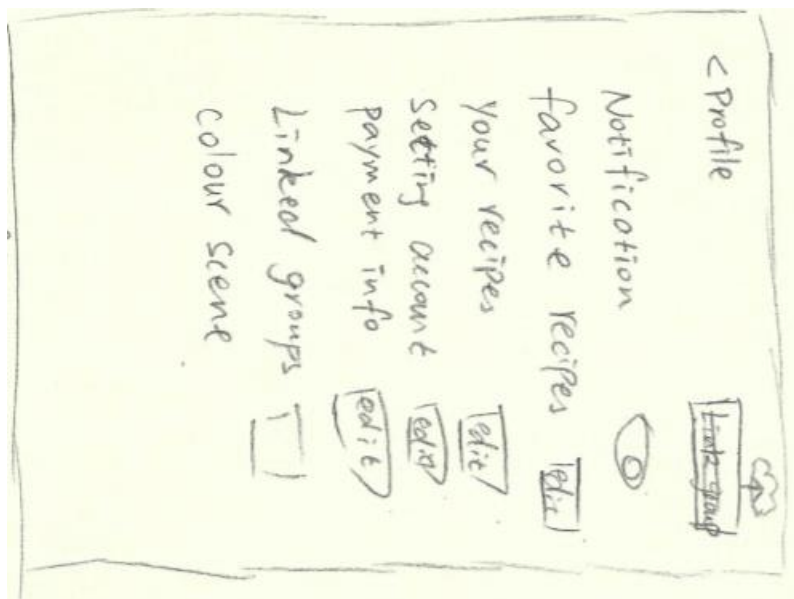 < Profile Link group
Notification
favorite recipes edit
Your recipes edit
Setting account edit
payment info edit
Linked groups
colour scene